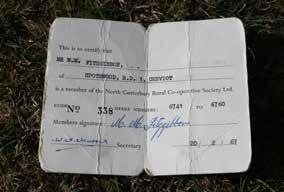 This is to certify that
MR M.W. FITZGIBBON,
of SPOTSWOOD, R.D. CHEVIOT
is a member of the North Canterbury Rural Co-operative Society Ltd.
No 338 6741 TO 6760
Members signature M. M. Fitzgibbon
Secretary 20/2/61